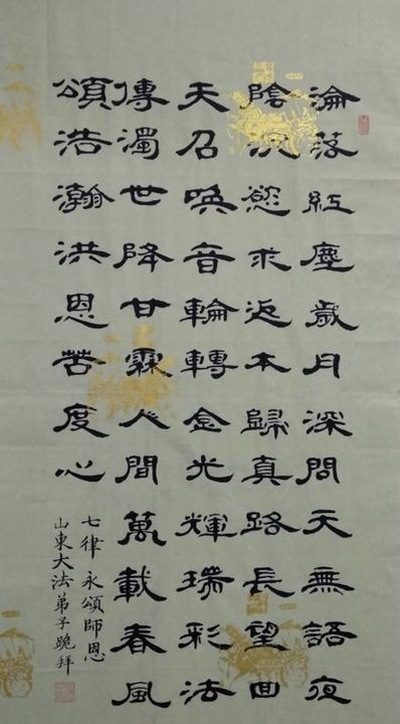 淪落紅塵歲月深問天無語夜
陰沉慾求返本歸真路長望回
天召喚音輪轉金光輝瑞彩法
傳濁世降甘霖人間萬載春風
頌浩瀚洪恩苦度心
七律 永頌師恩
山東大法弟子跪拜